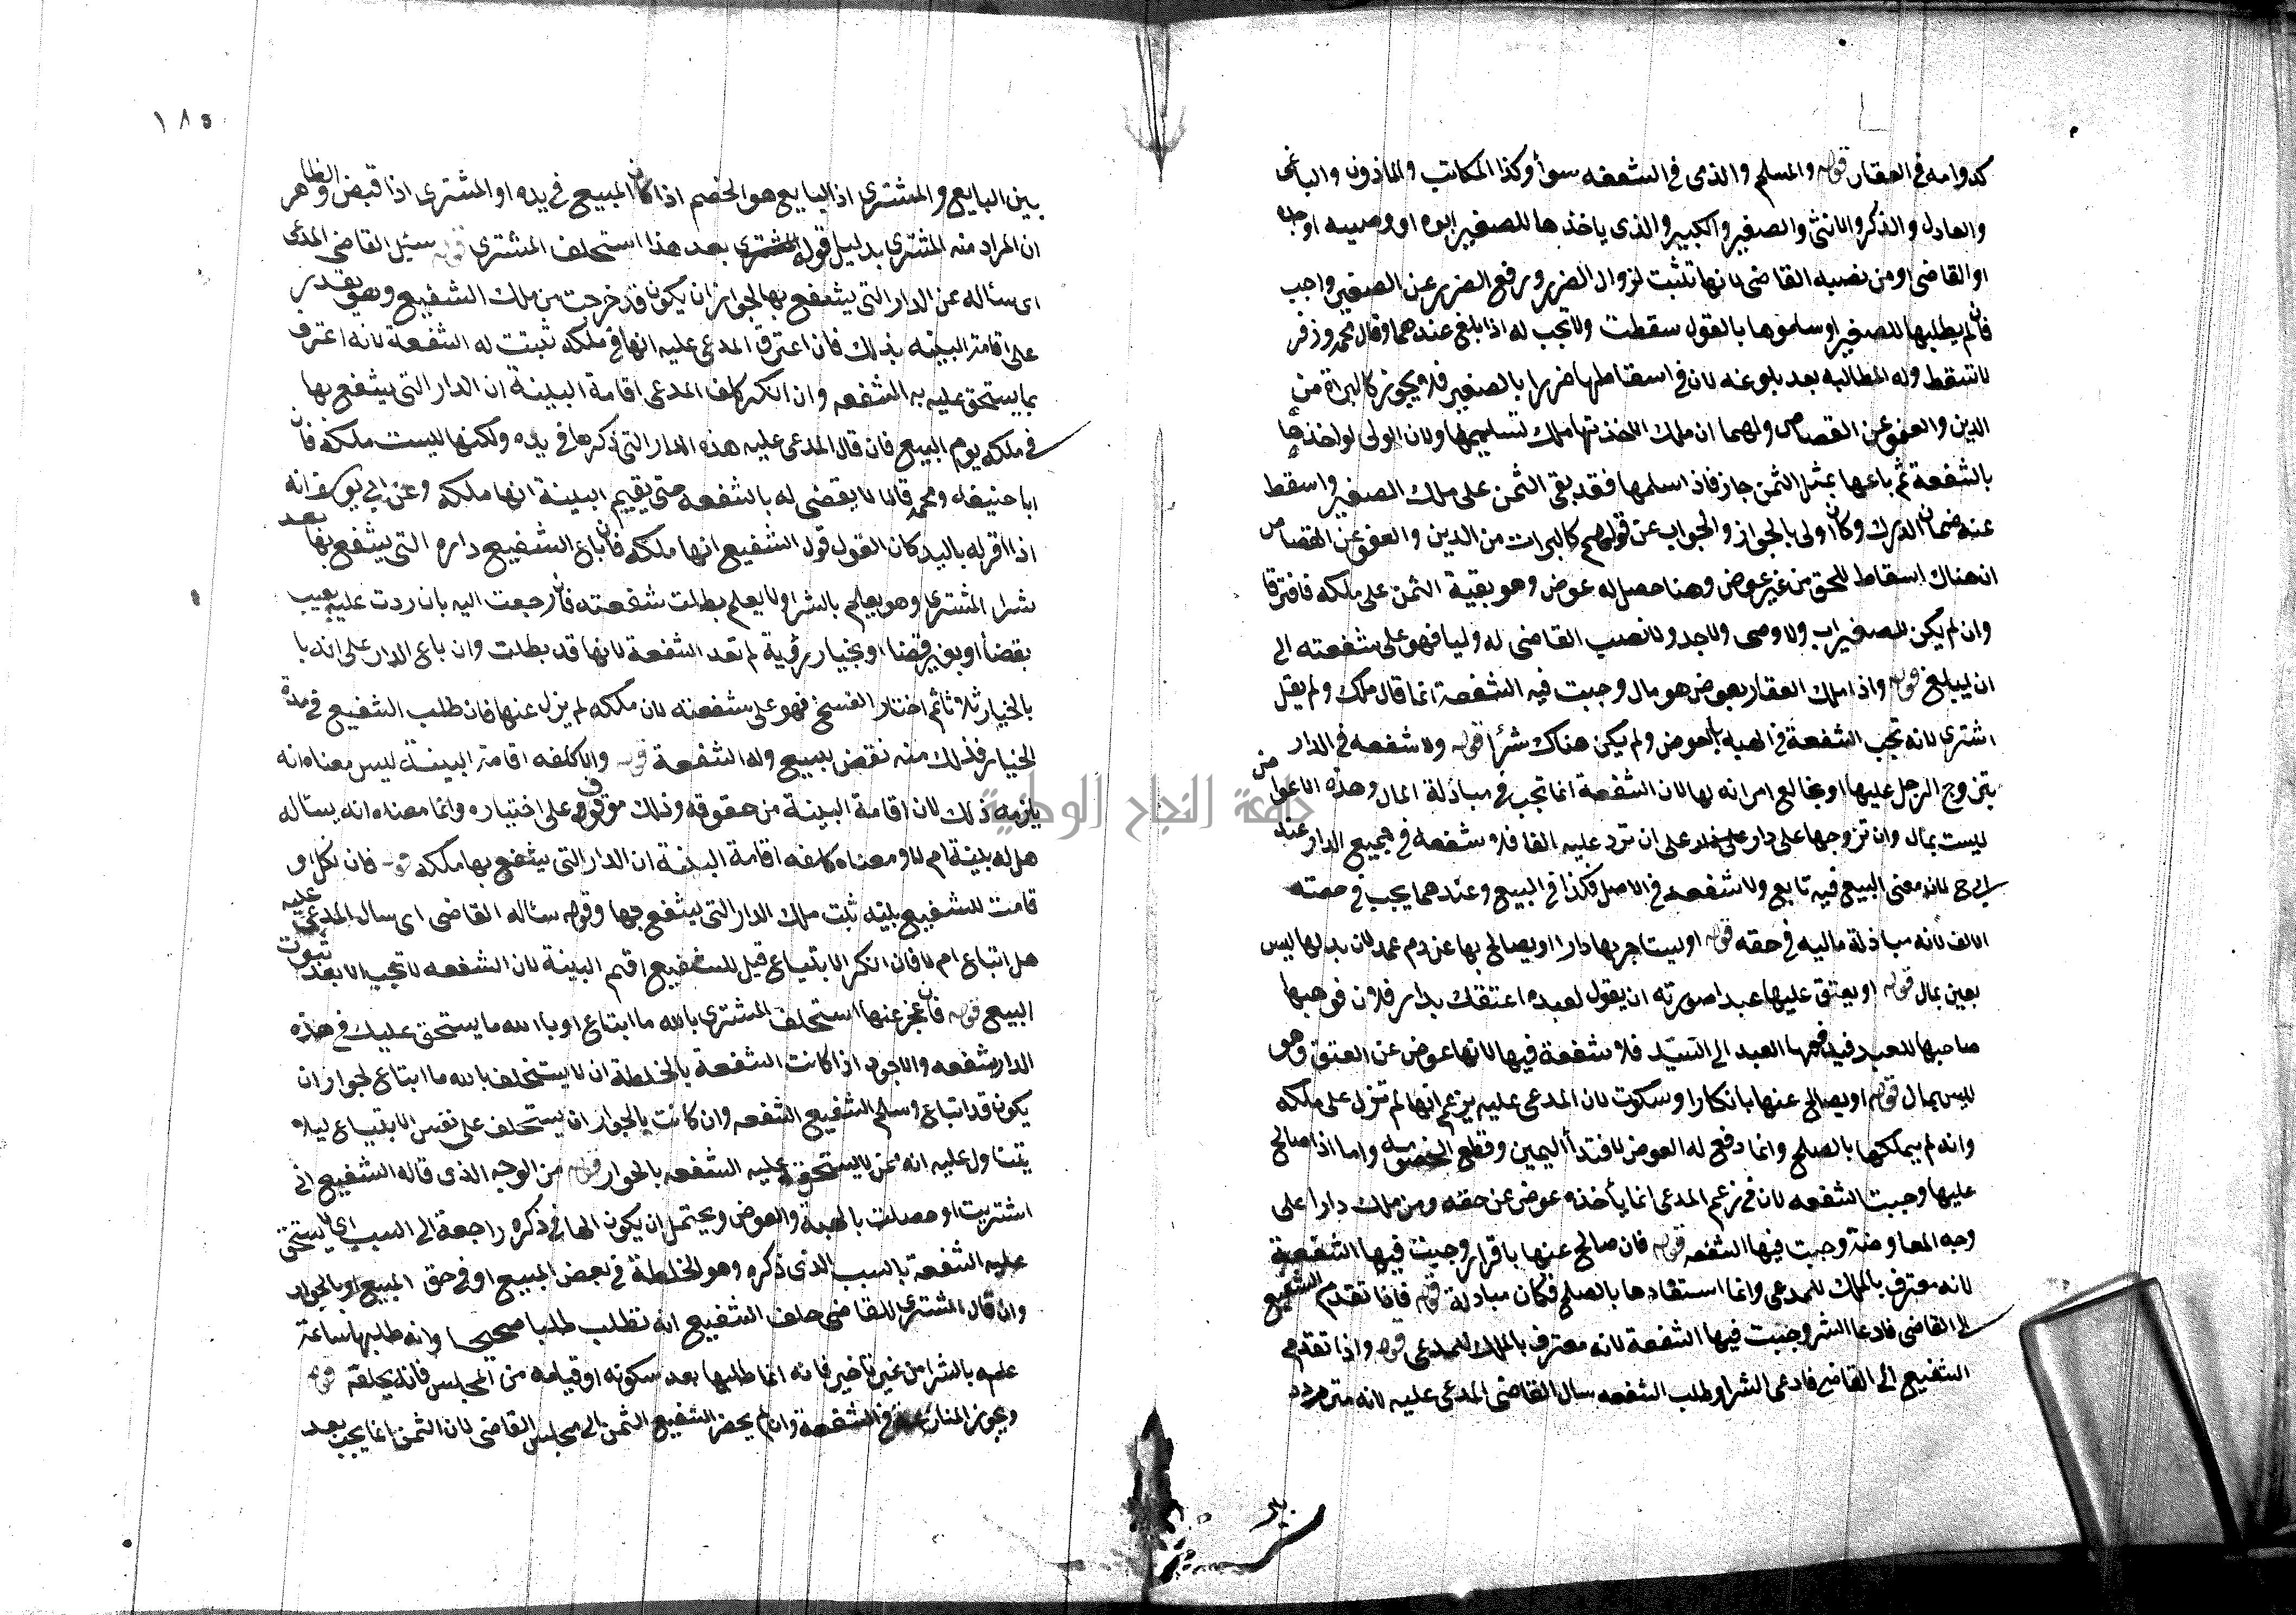 كدوامه في العقار قوله والمسلم والذمى في الشفعه سوأ وكذا المكاتب والماذون والباغى
والعادل والذكر والانثى والصغير والكبير والذى ياخذها للصغير ابوه او وصيه او جده
او القاضى او من نصبه القاضى لانها تثبت لزوال الضرر ورفع الضرر عن الصغير واجب
فان لم يطلبها للصغير او سلموها بالقول سقطت ولا تجب له اذا بلغ عندهما وقال محمد وزفر
لا تسقط وله المطالبه بعد بلوغه لان في اسقاطها ضررا بالصغير فلا يجوز كالبراة من
الدين والعفو عن القصاص ولهما ان ملك الاخذ بها ملك تسليمها ولان الولى لو اخذها
بالشفعة ثم باعها بمثل الثمن جاز فاذا سلمها فقد بقى الثمن على ملك الصغير واسقط
عنه ضمان الدرك وكان اولى بالجواز والجواب عن قولهم كالبرات من الدين والعفو عن القصاص
ان هناك اسقاط للحق من غير عوض وهنا حصل له عوض وهو بقية الثمن على ملكه فافترقا
وان لم يكن للصغير اب ولا وصى ولا جد ولا نصب القاضى له وليا فهو على شفعته الى
ان يبلغ قوله واذا ملك العقار بعوض هو مال وجبت فيه الشفعة انما قال ملك ولم يقل
اشترى لانه تجب الشفعة في الهبه بالعوض ولم يكن هناك شرأ قوله ولا شفعه في الدار
يتزوج الرجل عليها او يخالع امراته بها لان الشفعة انما تجب في مبادلة المال وهذه الاعواض
ليست بمال وان تزوجها على دار على ان ترد عليه الفا فلا شفعه في جميع الدار عند
ابي ح لانه معنى البيع فيه تابع ولا شفعه في الاصل فكذا في البيع وعندهما يجب في حصته
الالف لانه مبادلة ماليه في حقه قوله او يستاجر بها دارا او يصالح بها عن دم عمد لان بدلها ليس
بعين بمال قوله او يعتق عليها عبدا صورته ان يقول لعبده اعتقتك بدار فلان فوهبها
صاحبها للعبد فيدفعها العبد الى السيد فلا شفعة فيها لانها عوض عن العتق وهو
ليس بمال قوله او يصالح عنها بانكار او سكوت لان المدعى عليه يزعم انها لم تزل على ملكه
وانه لم يملكها بالصلح وانما دفع له العوض لافتدأ اليمين وقطع الخصومه واما اذا صالح
عليها وجبت الشفعه لان في زعم المدعى انما ياخذه عوض عن حقه ومن ملك دارا على
وجه المعاوضة وجبت فيها الشفعه قوله فان صالح عنها باقرار وجبت فيها الشفعة
لانه معترف بالملك للمدعى وانما استفادها بالصلح فكان مبادلة قوله فاذا تقدم الشفيع
الى القاضى فادعا الشر وجبت فيها الشفعة لانه معترف بالملك للمدعى قوله واذا تقدم
الشفيع الى القاضى فادعى الشرا وطلب الشفعه سال القاضى المدعى عليه لانه متردد
بين
١٨٥
بين البايع والمشترى اذ البايع هو الخصم اذا كان المبيع في يده او المشترى اذا قبض والظاهر
ان المراد منه المشترى بدليل قوله بعد هذا استحلف المشترى قوله سئل القاضى المدعى
اى سئاله عن الدار التى يشفع بها لجواز ان يكون قد خرجت من ملك الشفيع وهو يقدر
على اقامة البينه بذلك فان اعترف المدعى عليه انها في ملكه ثبتت له الشفعة لانه اعترف
بما يستحق عليه به الشفعه وان انكر كلف المدعى اقامة البينة ان الدار التى يشفع بها
في ملكه يوم البيع فان قال المدعى عليه هذه الدار التى ذكرها في يده ولكنها ليست ملكه فان
ابا حنيفه ومحمد قالا لا يقضى له بالشفعه حتى يقيم البينة انها ملكه وعن ابي يوسف انه
اذا اقر له باليد كان القول قول الشفيع انها ملكه فان باع الشفيع داره التى يشفع بها بعد
شراء المشترى وهو يعلم بالشرا ولا يعلم بطلت شفعته فان رجعت اليه بان ردت عليه بعيب
بقضأ او بغير قضا او بخيار رؤية لم تعد الشفعة لانها قد بطلت وان باع الدار على انه با
بالخيار ثلاثا ثم اختار الفسخ فهو على شفعته لان ملكه لم يزل عنها فان طلب الشفيع في مدة
الخيار فذلك منه نقض للبيع وله الشفعة قوله والا كلفه اقامة البينة ليس معناه انه
يلزمه ذلك لان اقامة البينة من حقوقه وذلك موقوف على اختياره وانما معناه انه يساله
هل له بينة ام لا ومعناه كلفه اقامة البينة ان الدار التى يشفع بها ملكه قوله فان نكل او
قامت للشفيع بينه ثبت ملك الدار التى يشفع بها وقوله سئاله القاضى اى سال المدعى عليه
هل ابتاع ام لا فان انكر الابتياع قيل للشفيع اقم البينة لان الشفعه لا تجب الا بعد ثبوت
البيع قوله فان عجز عنها استحلف المشترى بالله ما ابتاع او بالله ما يستحق عليك في هذه
الدار شفعه والاجود اذا كانت الشفعة بالخلطة ان لا يستحلف بالله ما ابتاع لجواز ان
يكون قد ابتاع وسلم الشفيع الشفعه وان كانت بالجوار ان يستحلف على نفس الابتياع ليلا
يتناول عليه انه ممن لا يستحق عليه الشفعه بالجوار قوله من الوجه الذى قاله الشفيع اني
اشتريت او حصلت بالهبة والعوض ويحتمل ان يكون الها في ذكره راجعة الى السبب اى لا يستحق
عليه الشفعة بالسبب الذى ذكره وهو الخلطة في بعض المبيع او في حق المبيع او بالجوار
وان قال المشترى للقاضى حلف الشفيع انه تطلب طلبا صحيحا وانه طلبها ساعة
علمه بالشرا من غير تاخير فانه انما طلبها بعد سكوته او قيامه من المجلس فانه يحلفه قوله
ويجوز المنازعة في الشفعة وان لم يحضر الشفيع الثمن الى مجلس القاضى لان الثمن انما يجب بعد
جامعة النجاح الوطنية